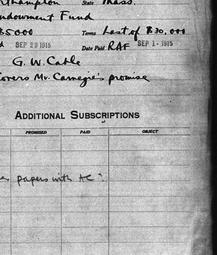 rthampton State Mass.
ndowment Fund
$5000 Terms Last of $30,000
d SEP 29 1915 Date Paid RAF SEP 1 - 1915
G. W. Cable
overs Mr. Carnegie's promise
ADDITIONAL SUBSCRIPTIONS
PROMISED PAID OBJECT
papers with AC.